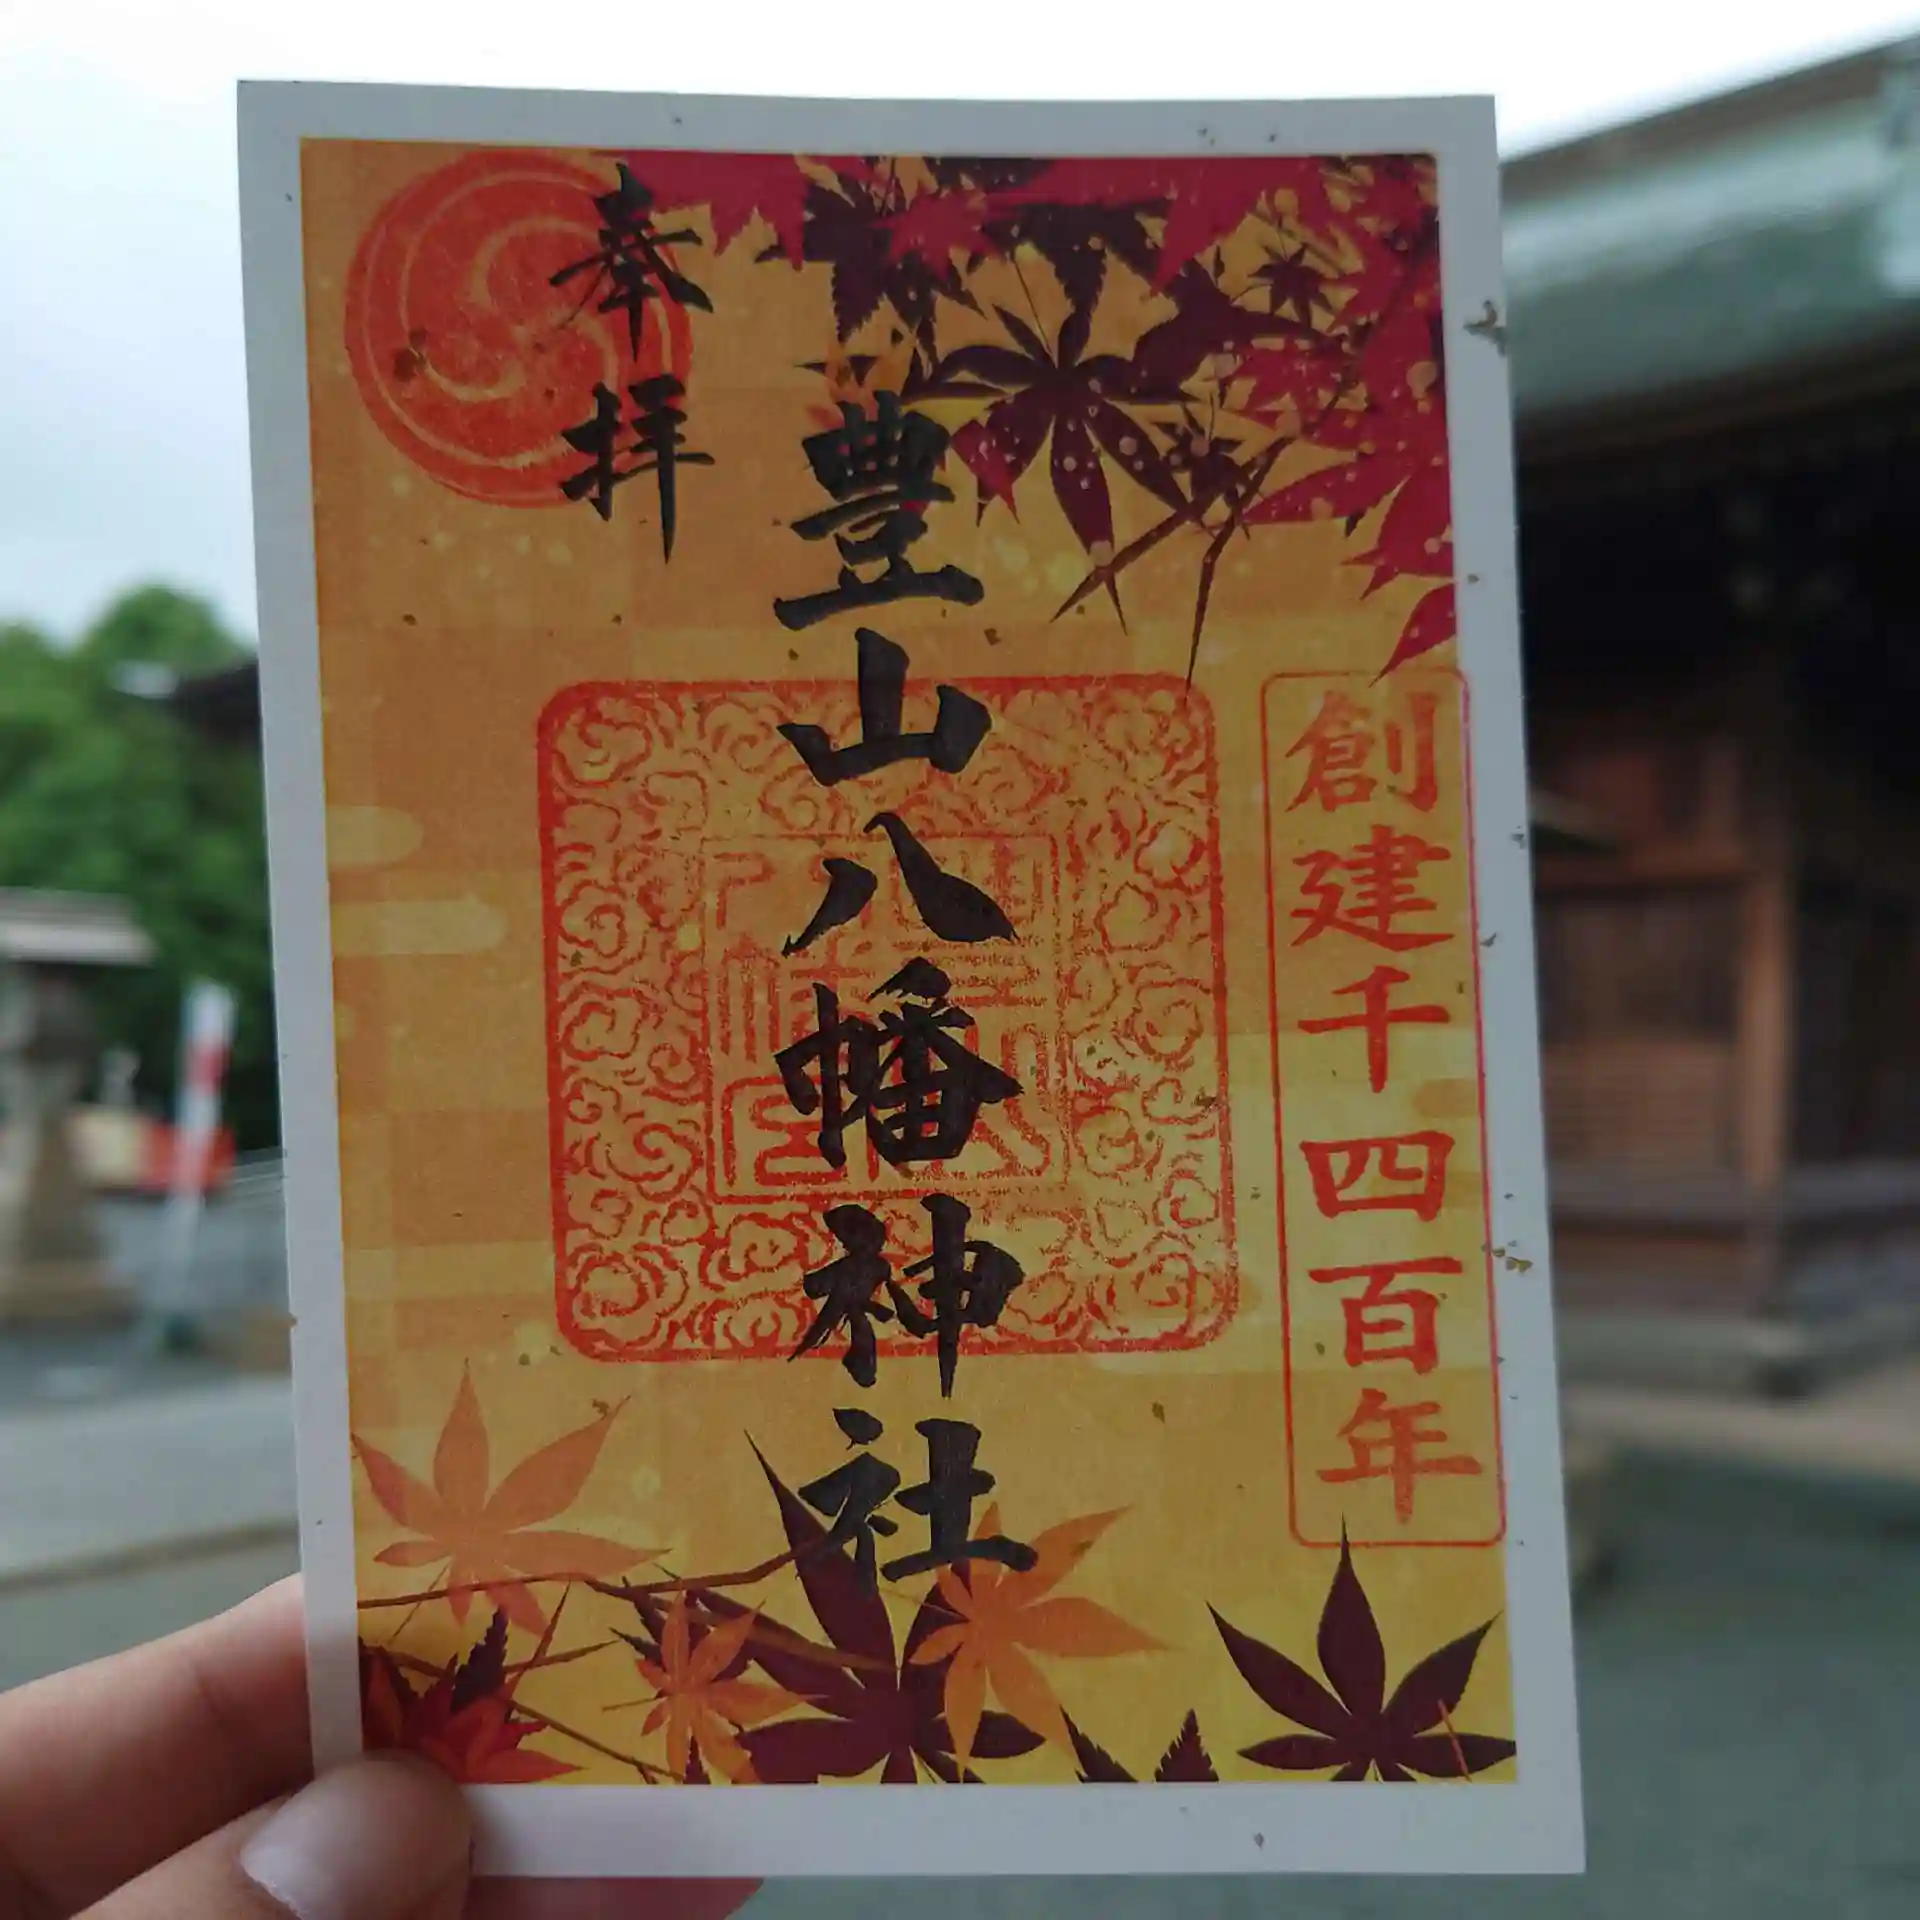 創建千四百年
豊山八幡神社
奉拝